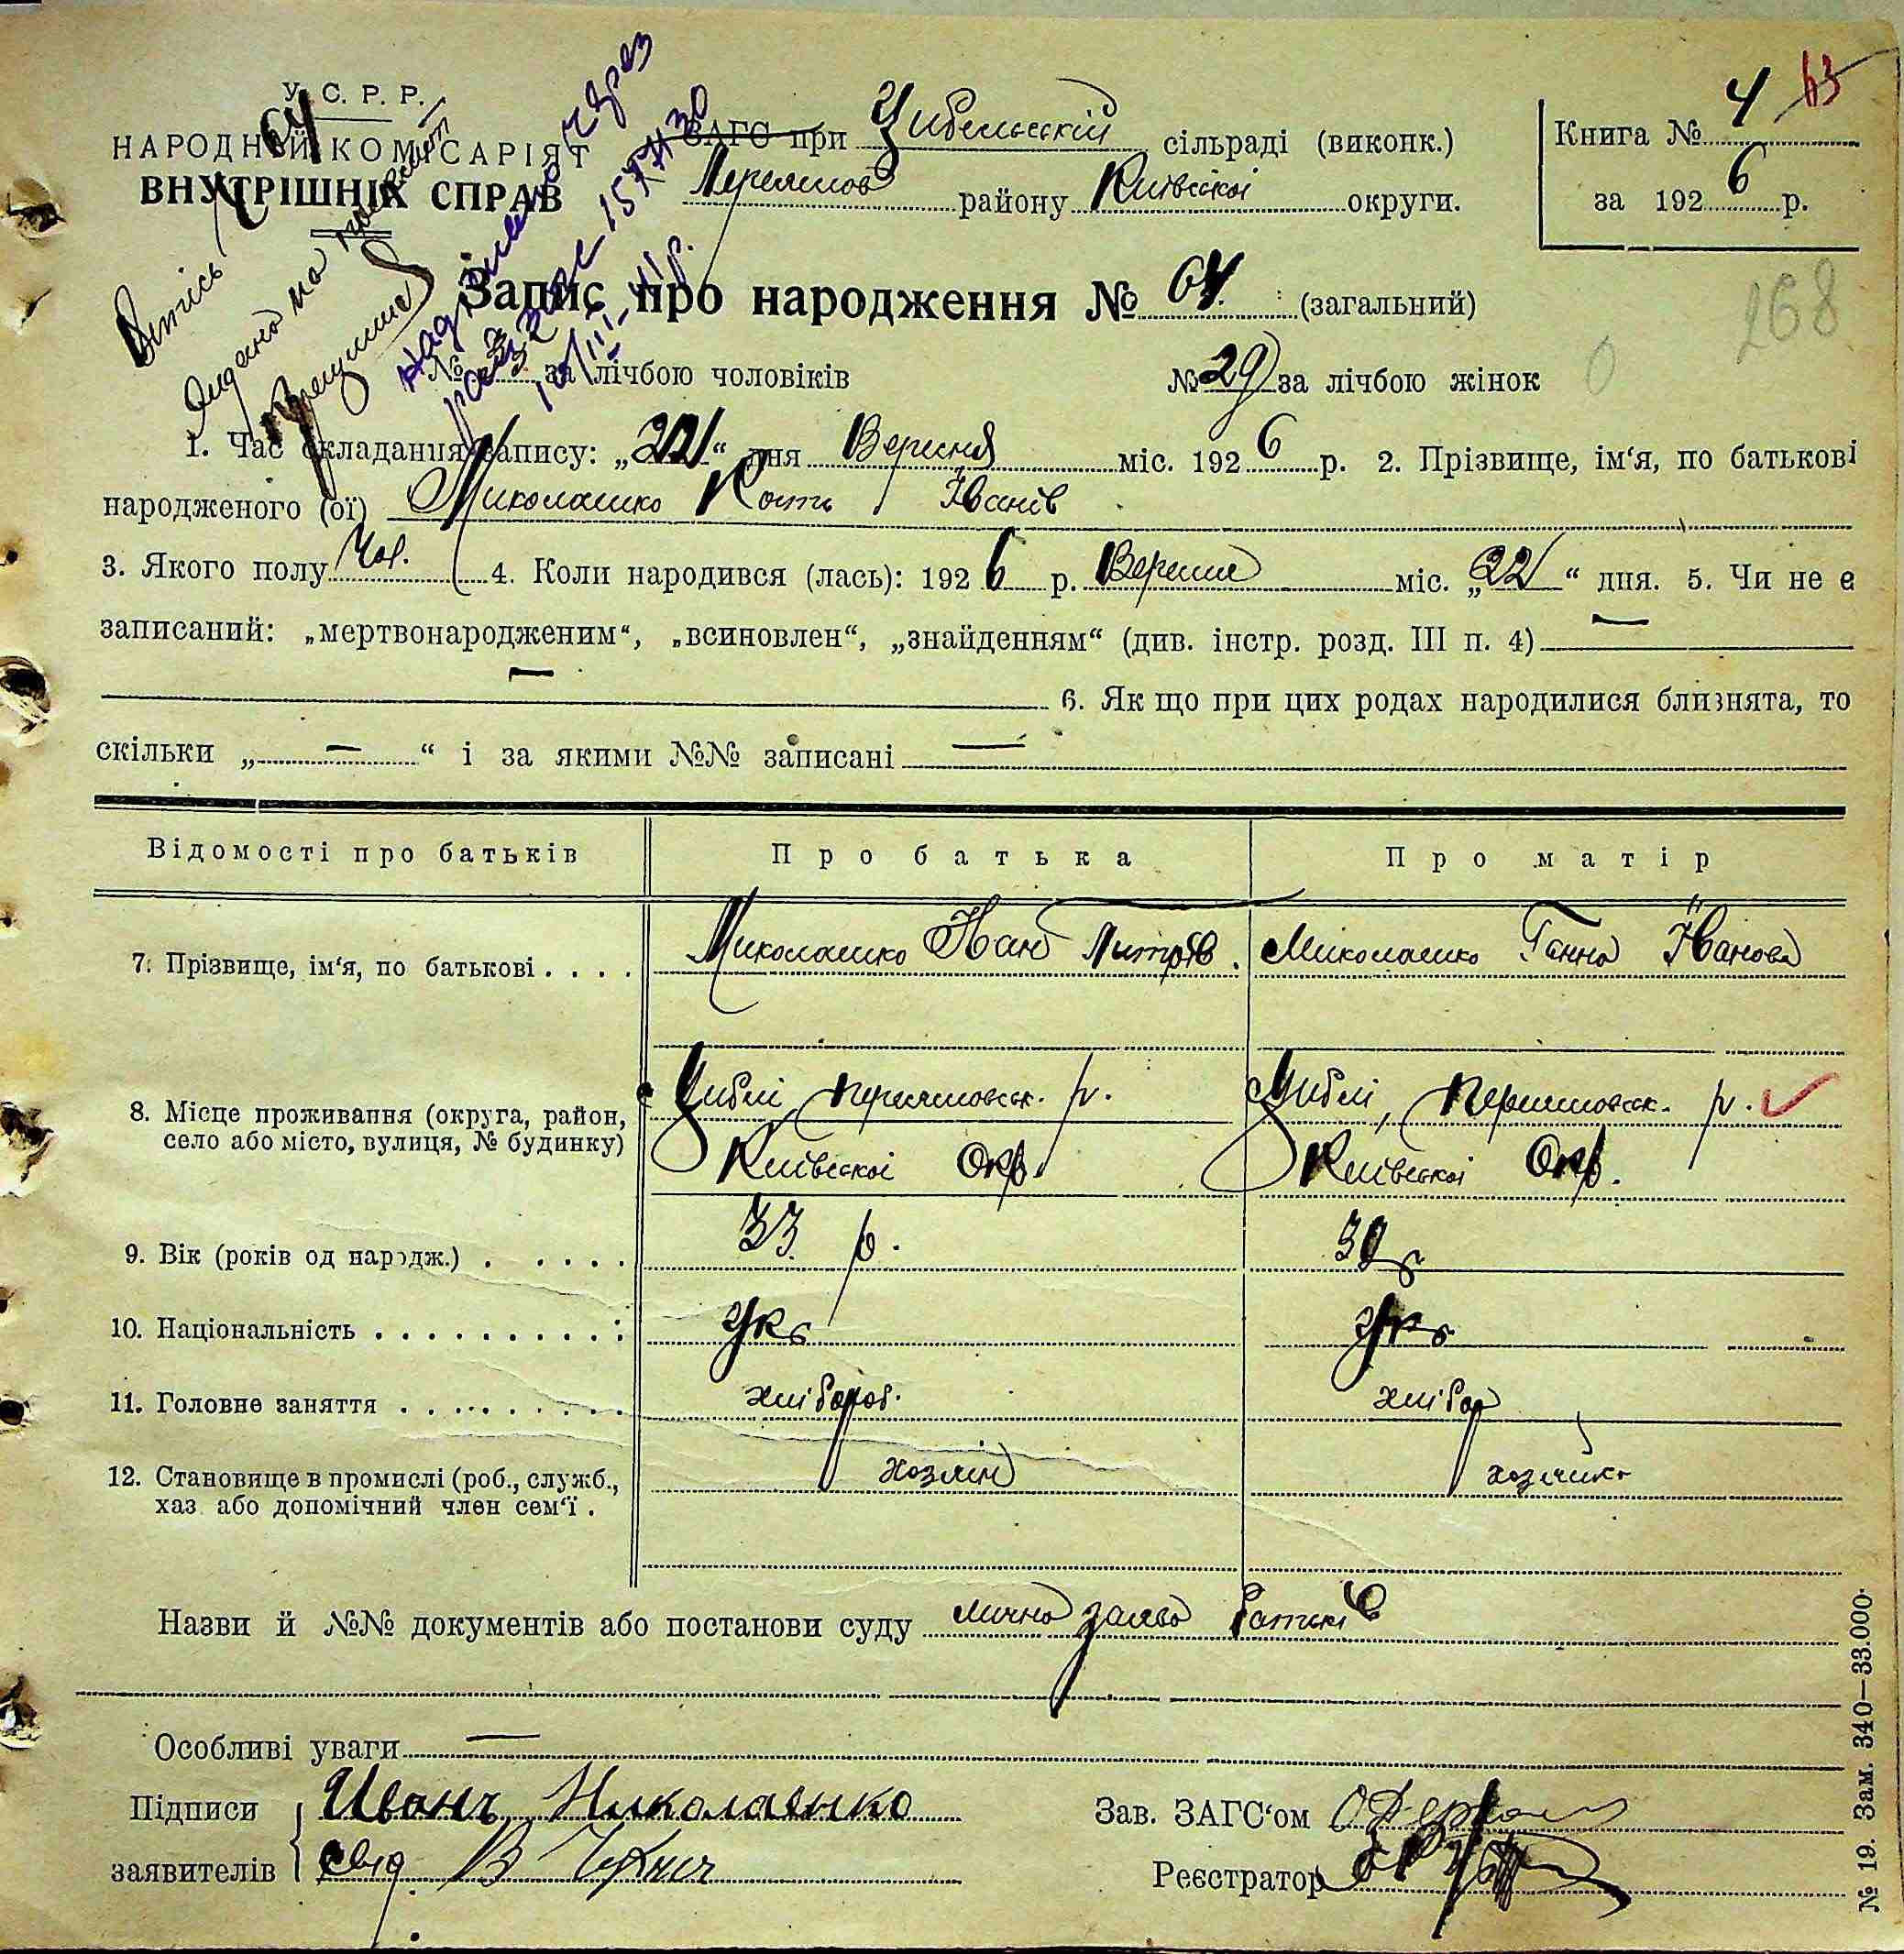 У. С. Р. Р.
НАРОДНИЙ КОМІСАРІЯТ
ВНУТРІШНІХ СПРАВ
ЗАГС при Цибельскій сільраді (виконк.)
Переяслов району Киівскоі округи.
Книга № 4 63
за 192 6 р.
268
Витісь 64
видано на
Надіслано через
15/XII 30
Запис про народження № 64 (загальний)
№ за лічбою чоловіків
№ 29 за лічбою жінок
1. Час складання запису: „22“ дня Вересня міс. 192 6 р. 2. Прізвище, ім'я, по батькові
народженого (ої) Миколаєнко Кость Іванів
3. Якого полу Чол. 4. Коли народився (лась): 192 6 р. Вересня міс. „22“ дня. 5. Чи не є
записаний: „мертвонародженим“, „всиновлен“, „знайденням“ (див. інстр. розд. III п. 4) —
— 6. Як що при цих родах народилися близнята, то
скільки „ — “ і за якими №№ записані —
Відомості про батьків Про батька Про матір
7. Прізвище, ім'я, по батькові . . . . Миколаєнко Іван Дмитрів. Миколаєнко Ганна Іванова
8. Місце проживання (округа, район, Циблі, Переяславск. р. Циблі, Переяславск. р.
село або місто, вулиця, № будинку) Киівскоі Окр. Киівскоі Окр.
9. Вік (років од народж.) . . . . . 33 р. 30
10. Національність . . . . . . . . . . Укр Укр
11. Головне заняття . . . . . . . . . хлібороб. хлібор
12. Становище в промислі (роб., служб., хозяін хозяйка
хаз. або допомічний член сем'ї .
Назви й №№ документів або постанови суду лична заява батьків
Особливі уваги —
Підписи Иванъ Николаенко Зав. ЗАГС'ом
заявителів свид. В Реєстратор
№ 19. Зам. 340—33.000.